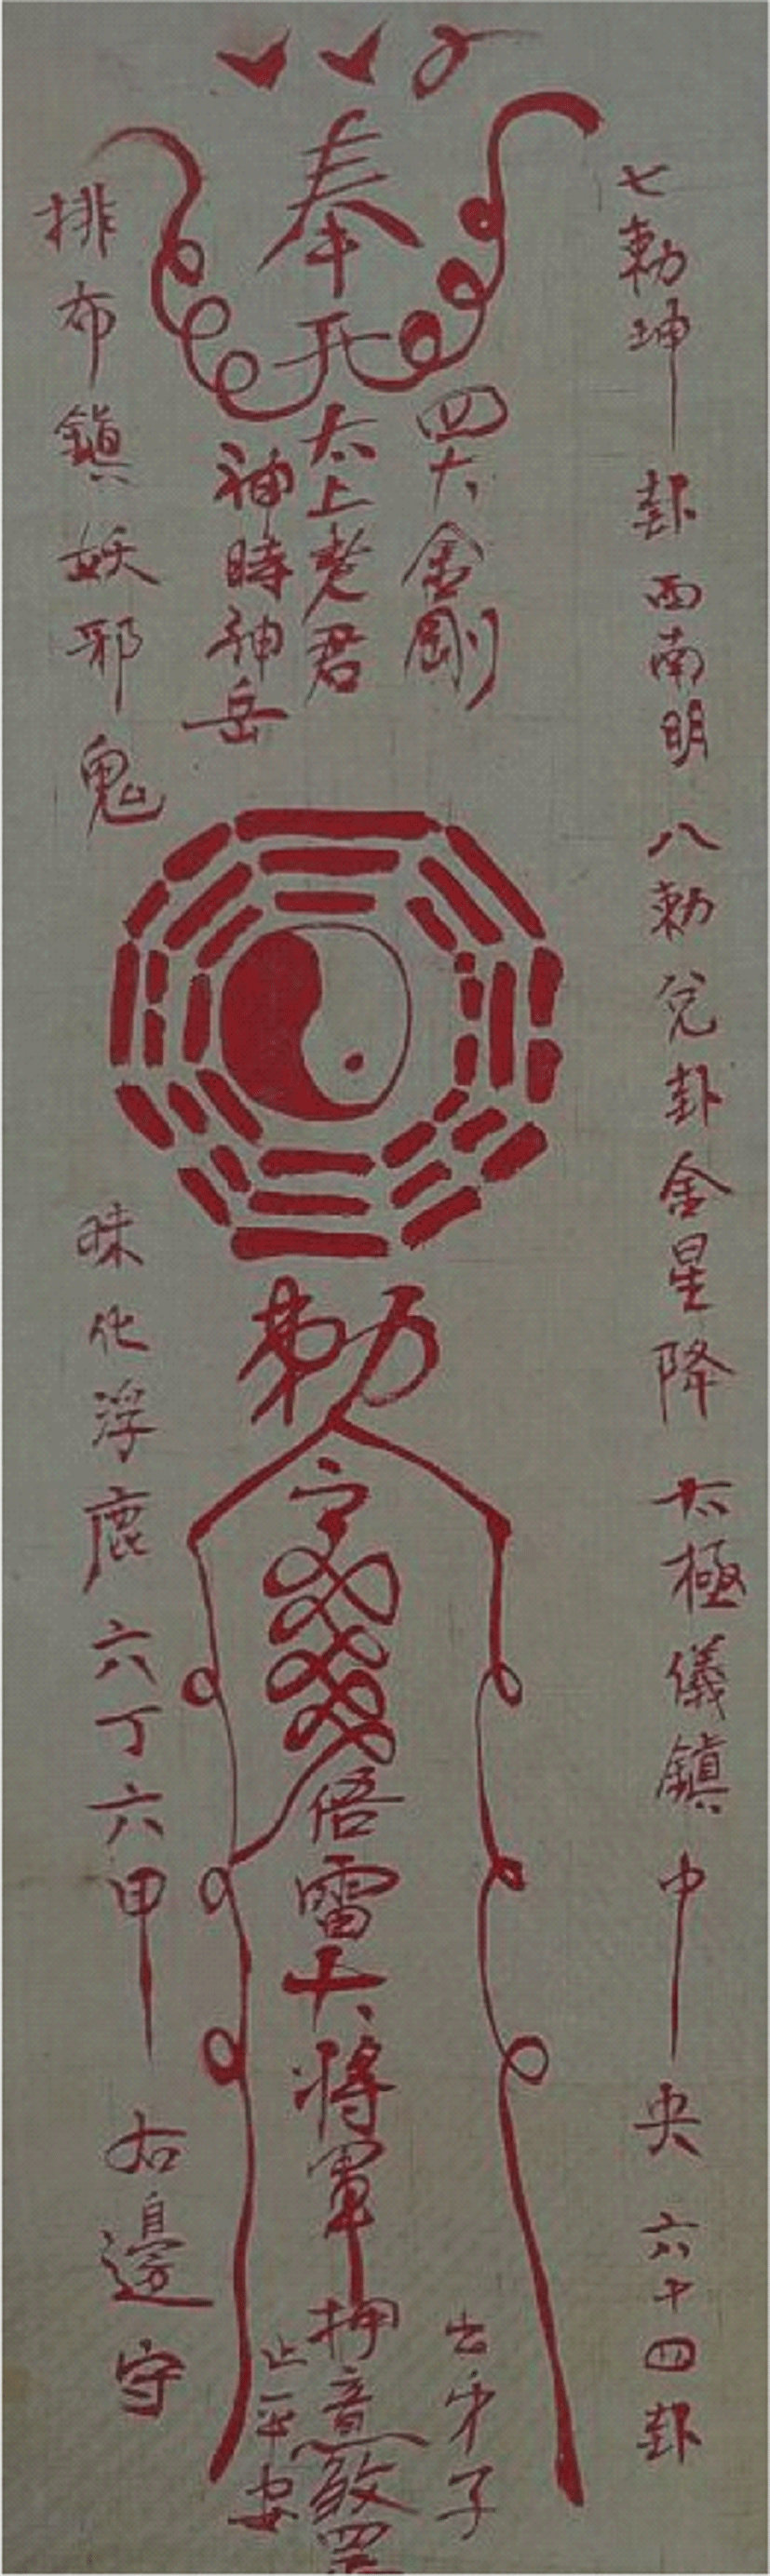 七勅坤卦西南明八勅兌卦金星降太極儀鎮中央六十四卦
奉
四大金剛
太上老君
神時神岳
勅
雷大將軍押
出弟子
平安
排布鎮妖邪鬼
化浮鹿六丁六甲右邊守